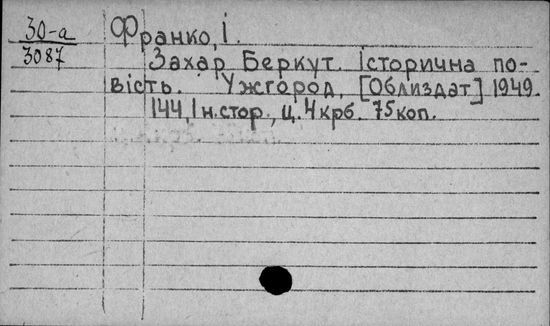 30-а
3087
Франко, І.
Захар Беркут. Історична по-
вість. Ужгород, [Облиздат] 1949.
144, 1 н. стор., ц. 4 крб. 75 коп.